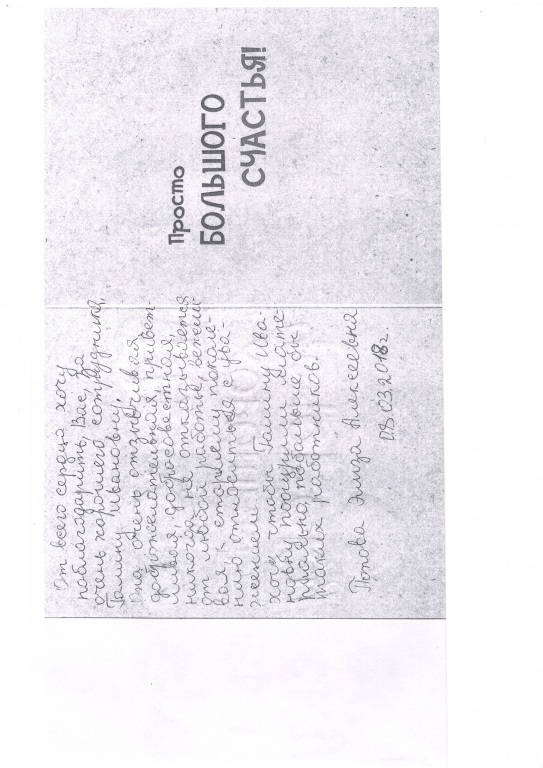 От всего сердца хочу
поблагодарить, Вас, за
очень хорошего сотрудника,
Галину Ивановну.
Она очень отзывчивая
доброжелательная, привет-
ливая, добросовестная,
никогда не отказывается
от любой работы,
вая к старшему поколе-
нию относиться с ува-
жением.
хочу чтобы Галину Ива-
новну поощрили мате-
риально, побольше бы
таких работников.
Попова Алексеевна
08.03.2018г.
Просто
БОЛЬШОГО
СЧАСТЬЯ!